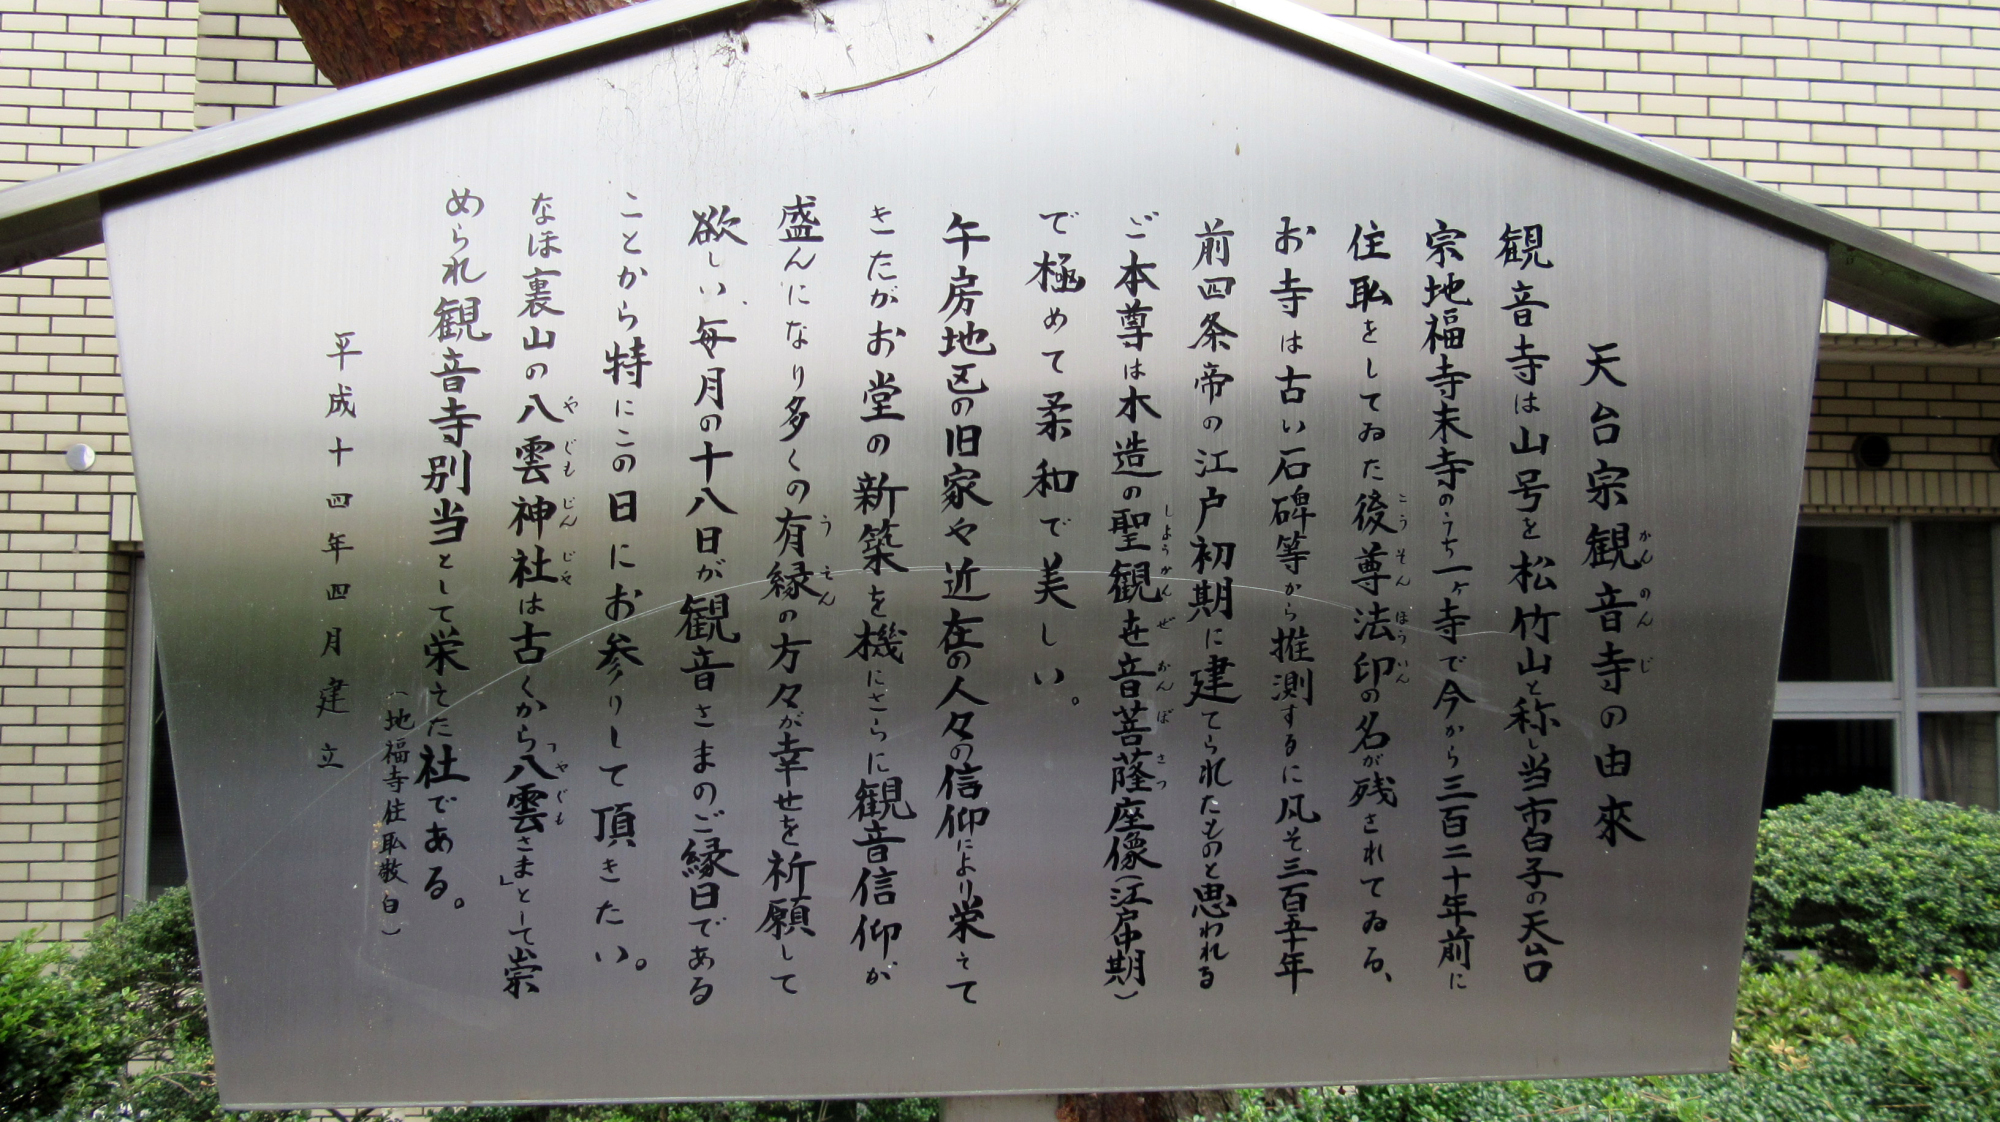 天台宗観音寺の由來
かんのんじ
観音寺は山号を松竹山と称し当市白子の天台
宗地福寺末寺のうち一ヶ寺で今から三百二十年前に
住耺をしてゐた後尊法印の名が残されてゐる、
こうそんほういん
お寺は古い石碑等から推測するに凡そ三百五十年
前四条帝の江戸初期に建てられたものと思われる
ご本尊は木造の聖観世音菩薩座像(江戸中期)
しようかんぜかんぼさつ
で極めて柔和で美しい。
午房地区の旧家や近在の人々の信仰により栄えて
きたがお堂の新築を機にさらに観音信仰が
盛んになり多くの有縁の方々が幸せを祈願して
うえん
欲しい、毎月の十八日が観音さまのご縁日である
ことから特にこの日にお参りして頂きたい。
なほ裏山の八雲神社は古くから八雲さま」として崇
やぐもじんじや
っやぐも
められ観音寺別当として栄えた社である。
(地福寺住耺敬白)
平成十四年四月建立